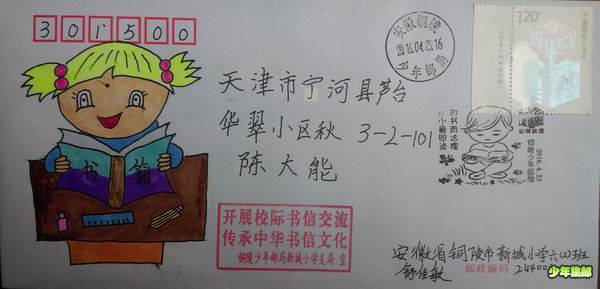 301500
安徽铜陵
2016.04.23.16
少年邮局
1.20元
中国邮政
天津市宁河县芦台
华翠小区秋 3-2-101
陈大能
书籍
2016.4.23
开展校际书信交流
传承中华书信文化
铜陵少年邮局新城小学支局 宣
安徽省铜陵市新城小学六(2)班
舒佳敏
邮政编码 24400
少年集邮